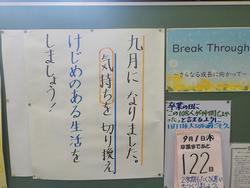 九月になりました。
気持ちを切り換え
けじめのある生活を
しましょう！
Break Through
～さらなる成長に向かって～
卒業の日に
9月1日(木)
卒業まであと
122日